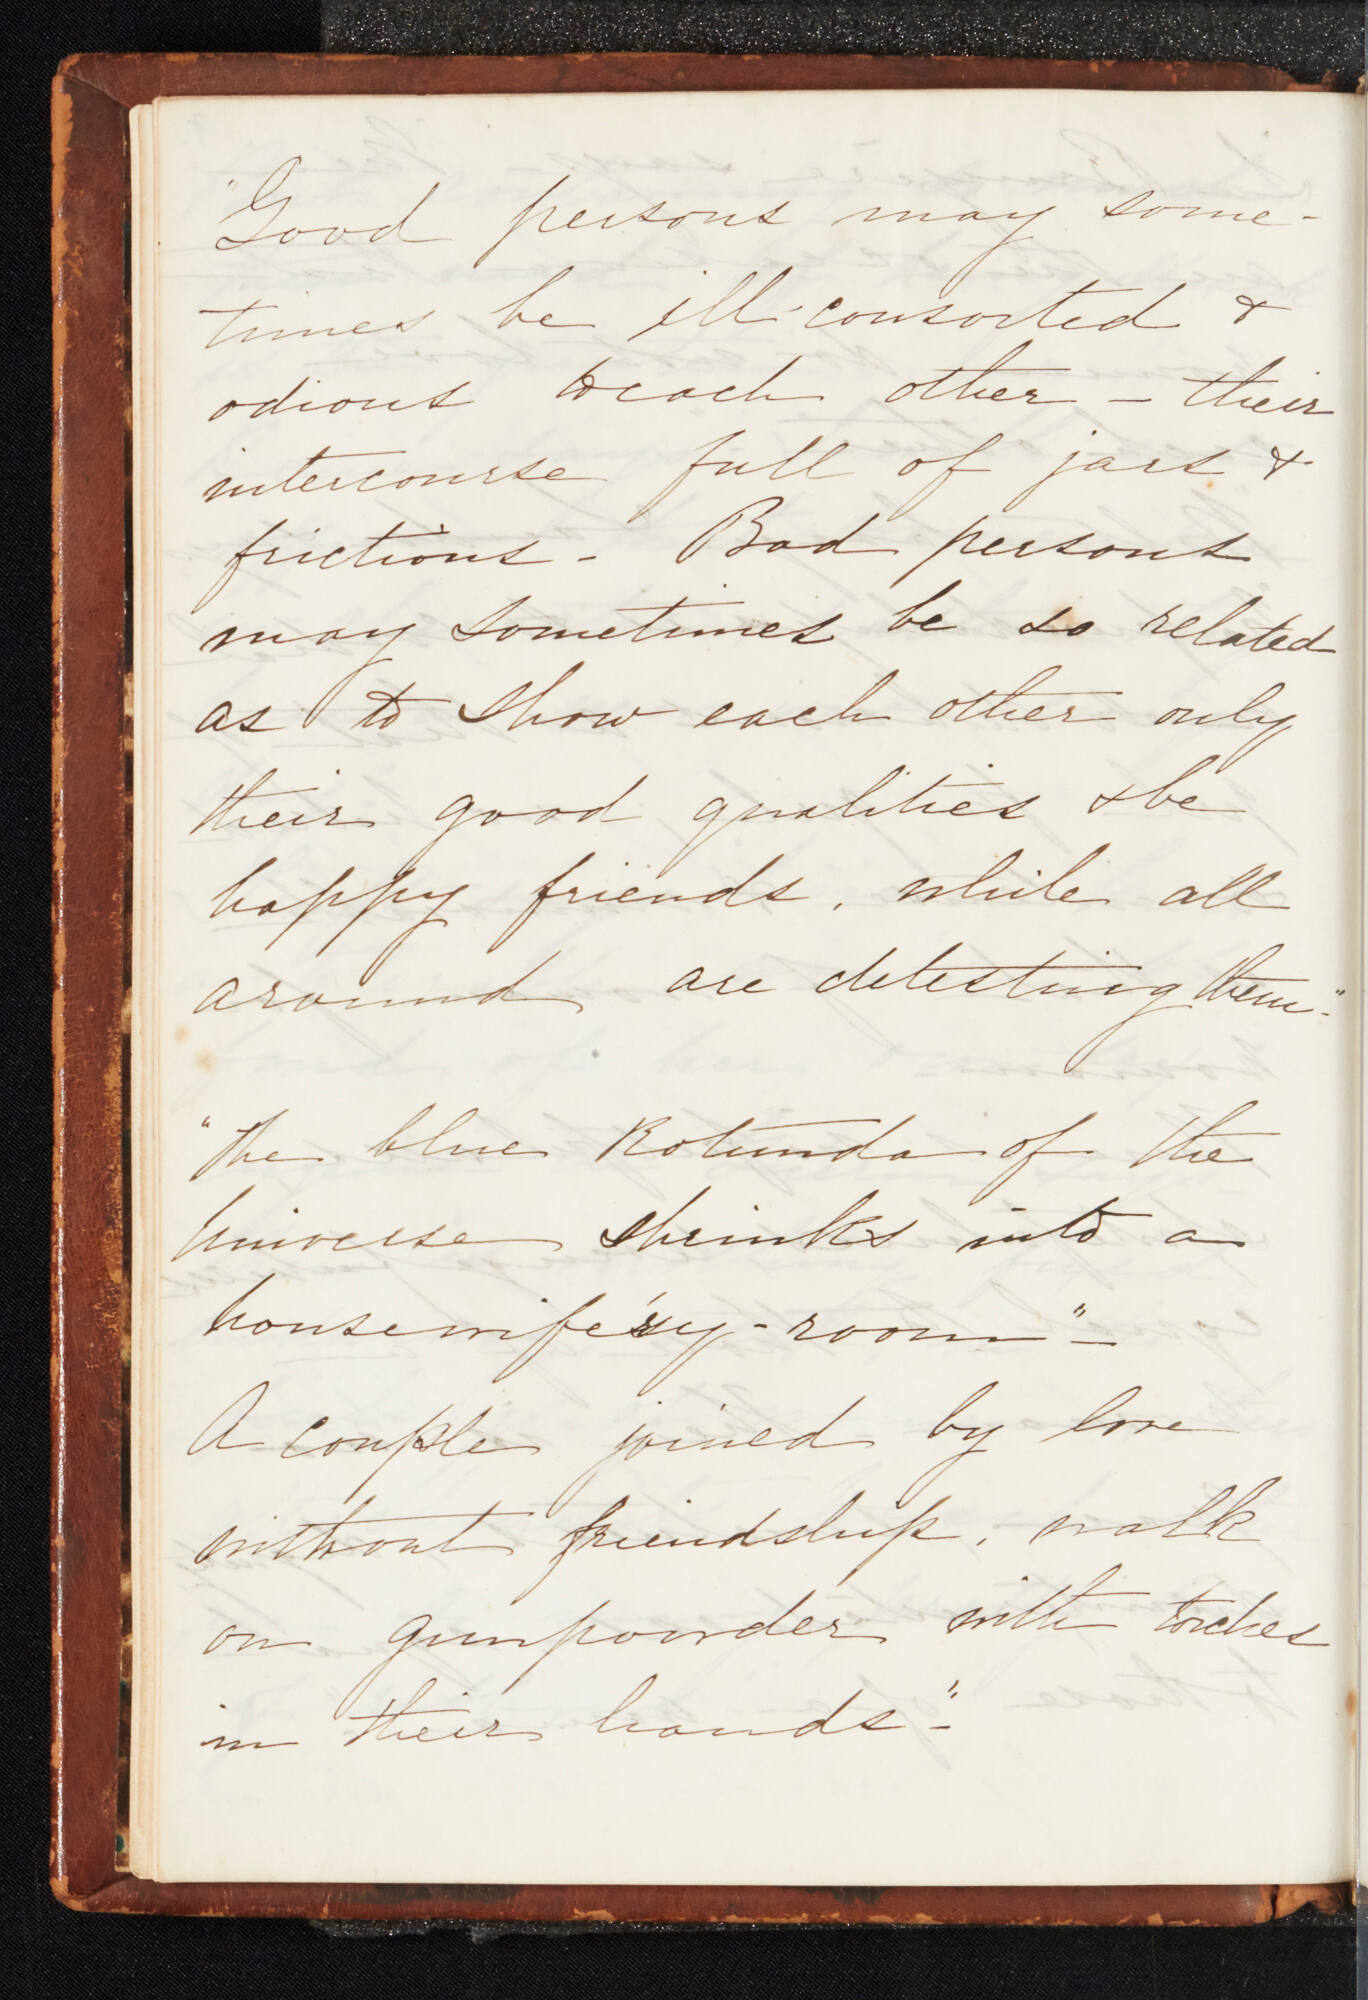 "Good persons may some-
times be ill-consorted &
odious to each other – their
intercourse full of jars &
frictions – Bad persons
may sometimes be so related
as to show each other only
their good qualities & be
happy friends, while all
around are detesting them."
"The blue Rotunda of the
Universe shrinks into a
housewifery-room" –
A couple joined by love
without friendship, walk
on gunpowder with torches
in their hands" –